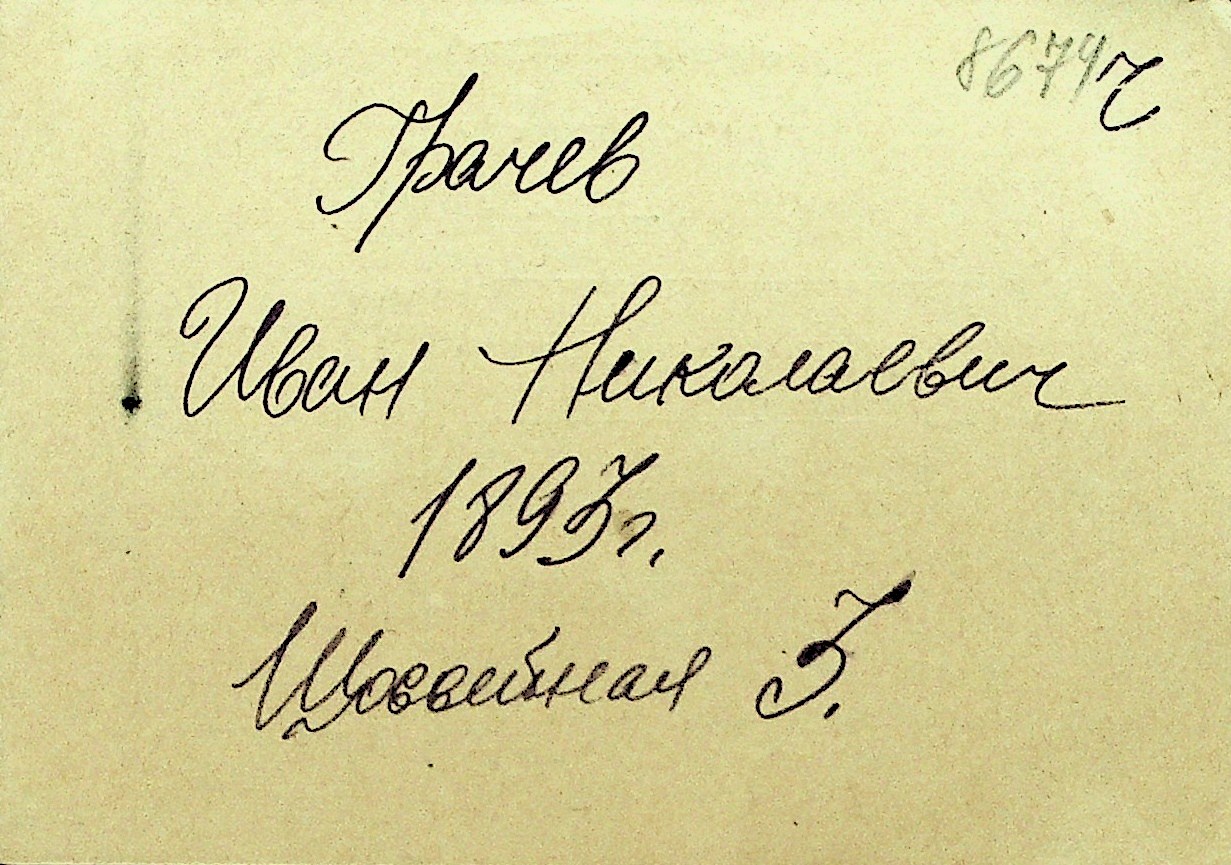 8674 ч
Грачев
Иван Николаевич
1893г.
Шоссейная 3.